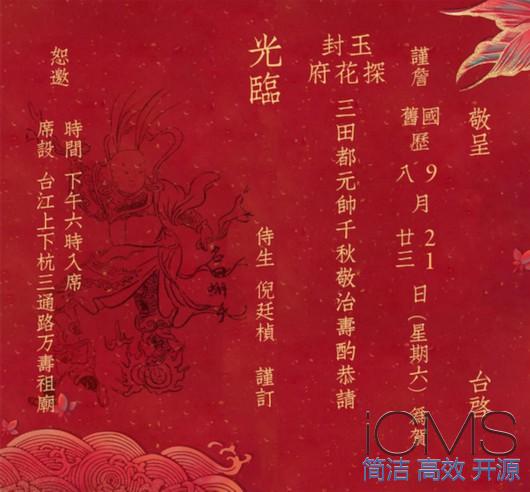 敬呈
台啓
謹詹
國
舊歷
9月21日(星期六)爲賀
八 廿三
玉封
探花府
三田都元帥千秋敬治壽酌恭請
光臨
侍生 倪廷楨 謹訂
時間 下午六時入席
席設 台江上下杭三通路万壽祖廟
恕邀
iCMS
简洁 高效 开源